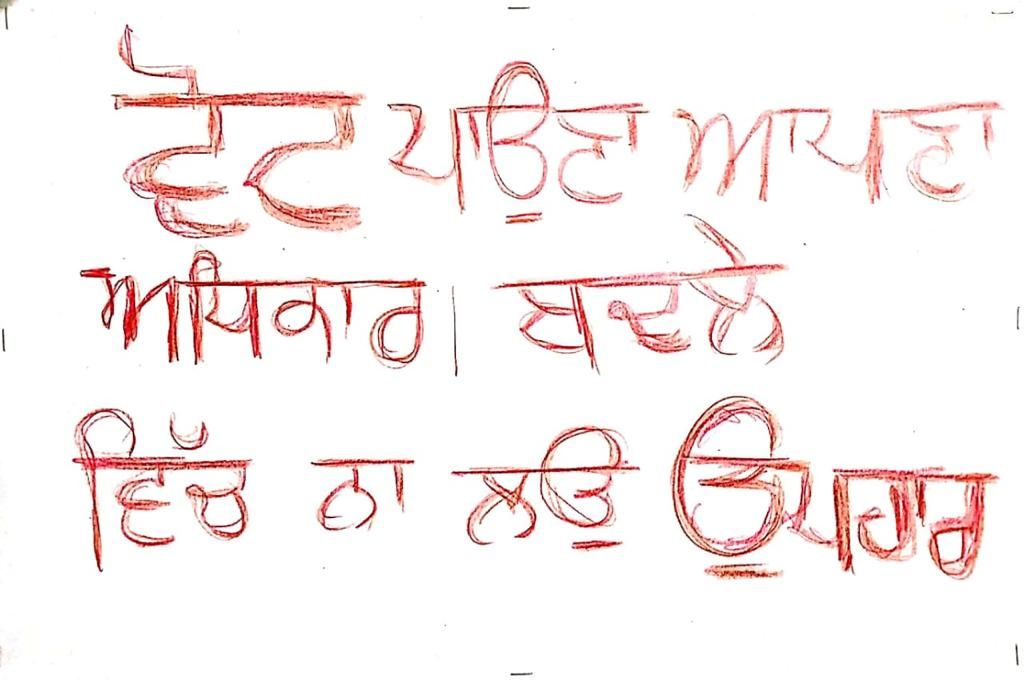 ਵੋਟ ਪਾਉਣਾ ਆਪਣਾ
ਅਧਿਕਾਰ। ਬਦਲੇ
ਵਿੱਚ ਨਾ ਲਉ ਉਪਹਾਰ